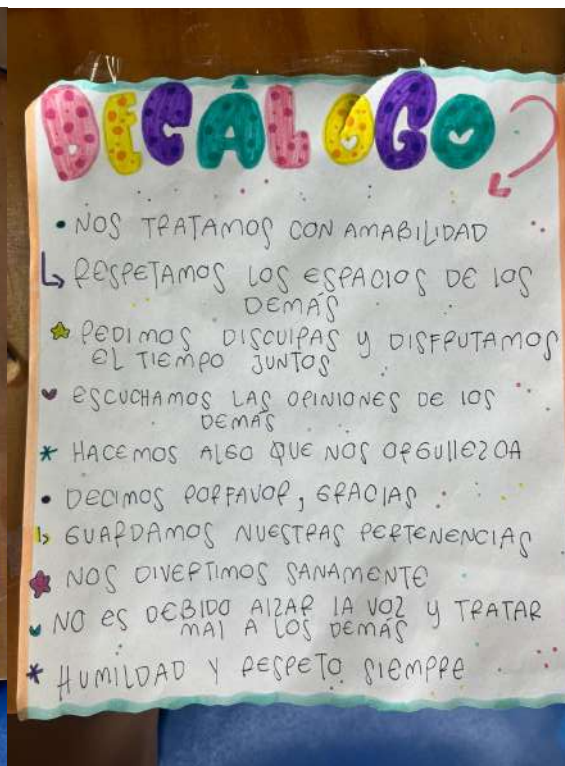 DECÁLOGO
• NOS TRATAMOS CON AMABILIDAD
RESPETAMOS LOS ESPACIOS DE LOS
DEMÁS
PEDIMOS DISCULPAS Y DISFRUTAMOS
EL TIEMPO JUNTOS
ESCUCHAMOS LAS OPINIONES DE LOS
DEMÁS
* HACEMOS ALGO QUE NOS ORGULLEZCA
• DECIMOS PORFAVOR, GRACIAS
GUARDAMOS NUESTRAS PERTENENCIAS
NOS DIVERTIMOS SANAMENTE
NO ES DEBIDO ALZAR LA VOZ Y TRATAR
MAL A LOS DEMÁS
* HUMILDAD Y RESPETO SIEMPRE